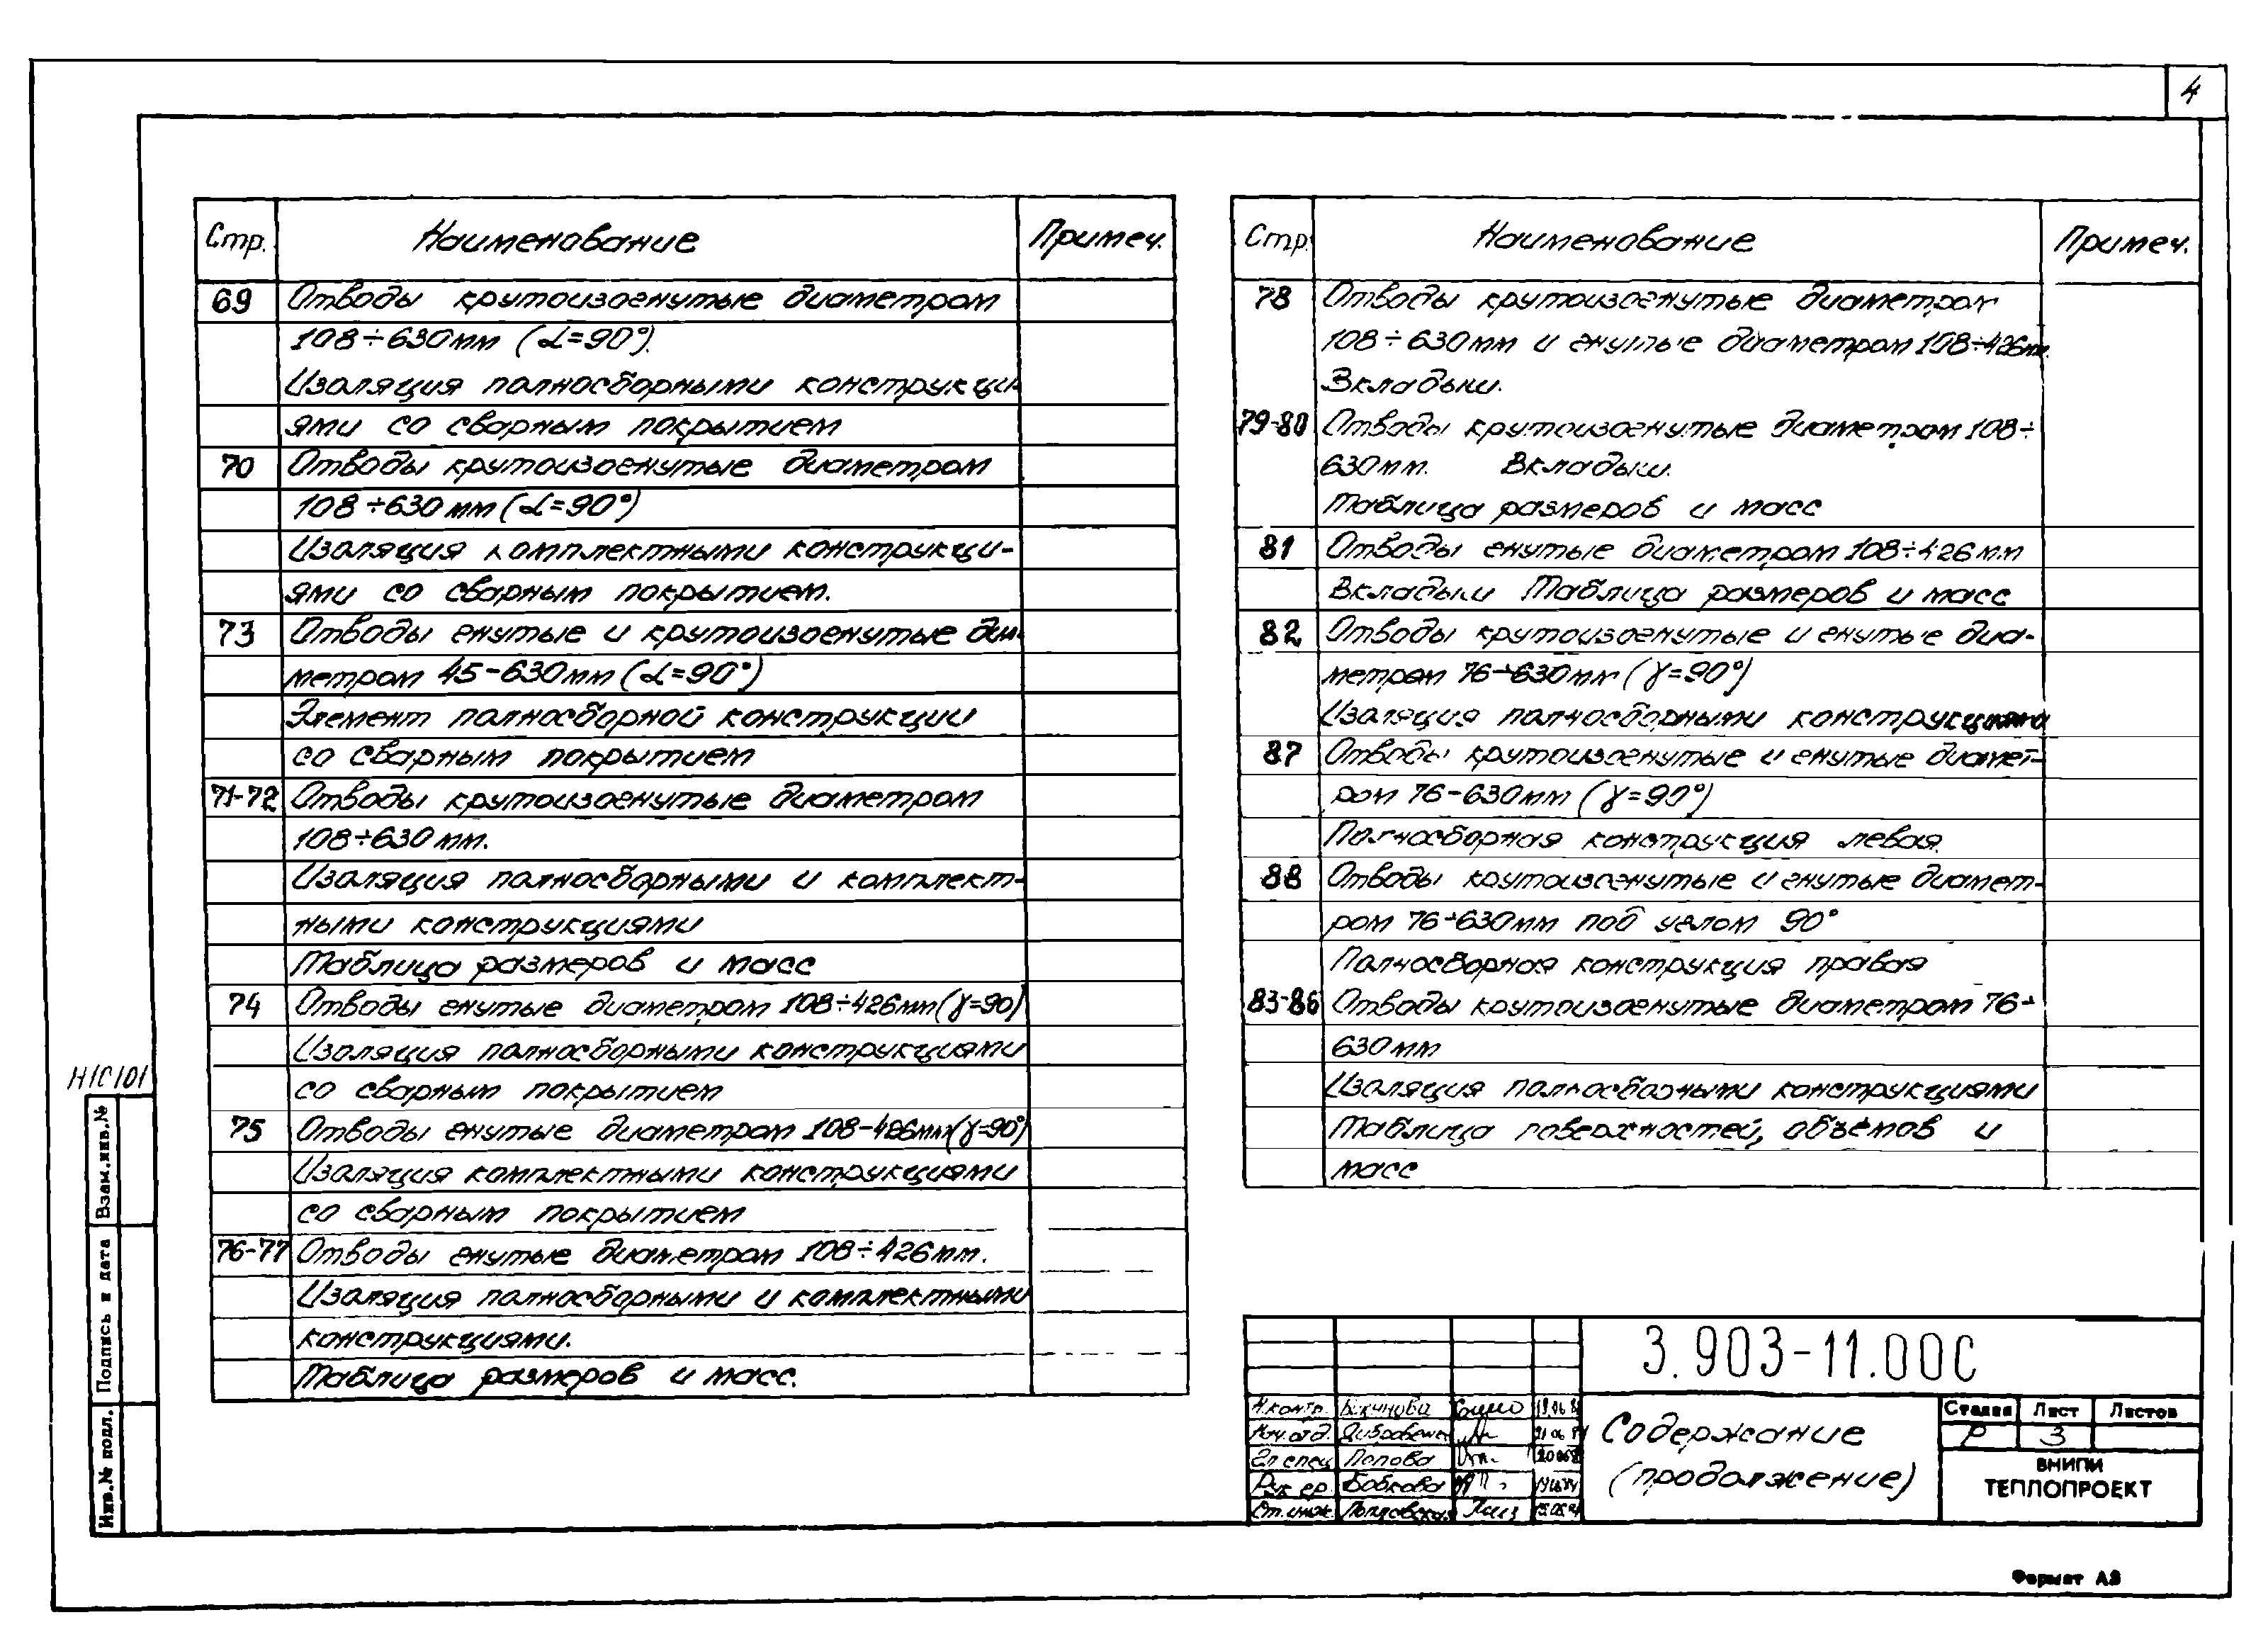 4
Стр. Наименование Примеч.
69 Отводы крутоизогнутые диаметром
108÷630мм (α=90°).
Изоляция полносборными конструкци-
ями со сварным покрытием
70 Отводы крутоизогнутые диаметром
108÷630мм (α=90°)
Изоляция комплектными конструкци-
ями со сварным покрытием.
73 Отводы гнутые и крутоизогнутые диа-
метром 45-630мм (α=90°)
Элемент полносборной конструкции
со сварным покрытием
71-72 Отводы крутоизогнутые диаметром
108÷630мм.
Изоляция полносборными и комплект-
ными конструкциями
Таблица размеров и масс
74 Отводы гнутые диаметром 108÷426мм(γ=90)
Изоляция полносборными конструкциями
со сварным покрытием
75 Отводы гнутые диаметром 108-426мм(γ=90°)
Изоляция комплектными конструкциями
со сварным покрытием
76-77 Отводы гнутые диаметром 108÷426мм.
Изоляция полносборными и комплектными
конструкциями.
Таблица размеров и масс.
Стр. Наименование Примеч.
78 Отводы крутоизогнутые диаметром
108÷630мм и гнутые диаметром 108÷426мм.
Вкладыш.
79-80 Отводы крутоизогнутые диаметром 108÷
630мм. Вкладыш.
Таблица размеров и масс
81 Отводы гнутые диаметром 108÷426мм
Вкладыш Таблица размеров и масс
82 Отводы крутоизогнутые и гнутые диа-
метром 76÷630мм (γ=90°)
Изоляция полносборными конструкциями
87 Отводы крутоизогнутые и гнутые диамет-
ром 76-630мм (γ=90°)
Полносборная конструкция левая.
88 Отводы крутоизогнутые и гнутые диамет-
ром 76÷630мм под углом 90°
Полносборная конструкция правая
83-86 Отводы крутоизогнутые диаметром 76÷
630мм
Изоляция полносборными конструкциями
Таблица поверхностей, объёмов и
масс
Н1С101
Взам.инв.№
Подпись и дата
Инв.№ подл.
3.903-11.00С
Н.контр.
Нач.отд.
Гл спец Попова
Рук гр. Бобкова
Ст.инж.
Содержание
(продолжение)
Стадия Лист Листов
Р 3
ВНИПИ
ТЕПЛОПРОЕКТ
Формат А3